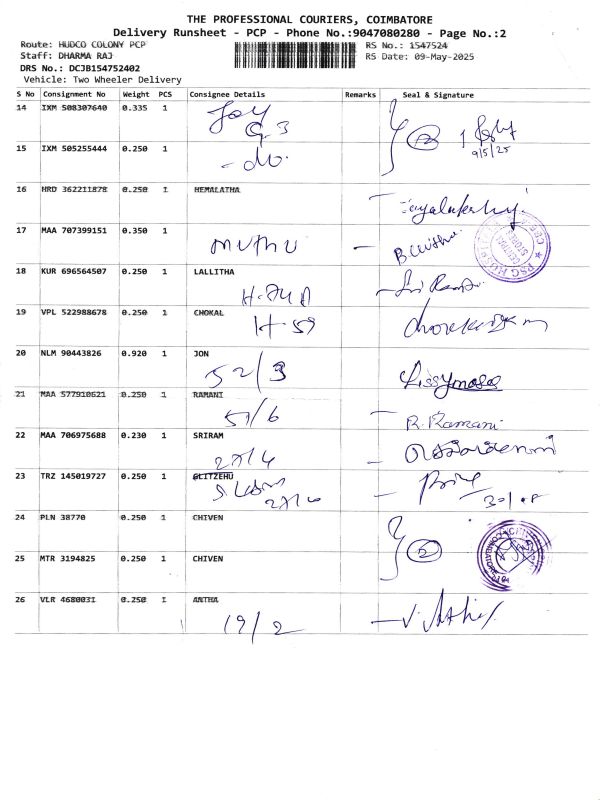 THE PROFESSIONAL COURIERS, COIMBATORE
Delivery Runsheet - PCP - Phone No.:9047080280 - Page No.:2
Route: HUDCO COLONY PCP RS No.: 1547524
Staff: DHARMA RAJ RS Date: 09-May-2025
DRS No.: DCJB154752402
Vehicle: Two Wheeler Delivery
S No Consignment No Weight PCS Consignee Details Remarks Seal & Signature
14 IXM 508307640 0.335 1
Joy
G 3
2
9/5/25
15 IXM 505255444 0.250 1
- do.
16 HRD 362211878 0.250 1 HEMALATHA
17 MAA 707399151 0.350 1
muthu
18 KUR 696564507 0.250 1 LALLITHA
19 VPL 522988678 0.250 1 CHOKAL
H-59
20 NLM 90443826 0.920 1 JON
52/3
21 MAA 577910621 0.250 1 RAMANI
51/6 R. Ramani
22 MAA 706975688 0.230 1 SRIRAM
27/4
23 TRZ 145019727 0.250 1 GLITZEHU
24 PLN 38770 0.250 1 CHIVEN
25 MTR 3194825 0.250 1 CHIVEN
26 VLR 4680031 0.250 1 ANTHA
19/2